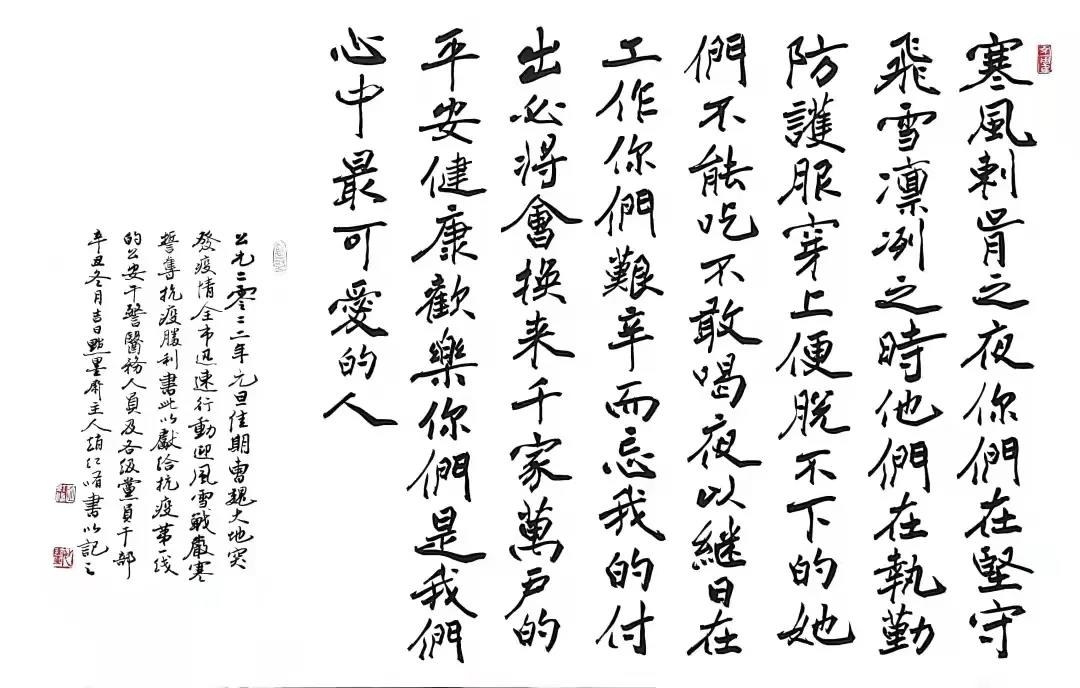 寒風刺骨之夜你們在堅守
飛雪凛冽之時他們在執勤
防護服穿上便脫不下的她
們不能吃不敢喝夜以继日在
工作你們艱辛而忘我的付
出必将會换来千家萬户的
平安健康歡樂你們是我們
心中最可愛的人
公元二零二二年元旦佳期曹魏大地突
發疫情全市迅速行動迎風雪戰嚴寒
誓奪抗疫勝利書此以獻给抗疫第一线
的公安干警醫務人員及各级黨員干部
辛丑冬月吉日點墨齋主人趙仁書以記之